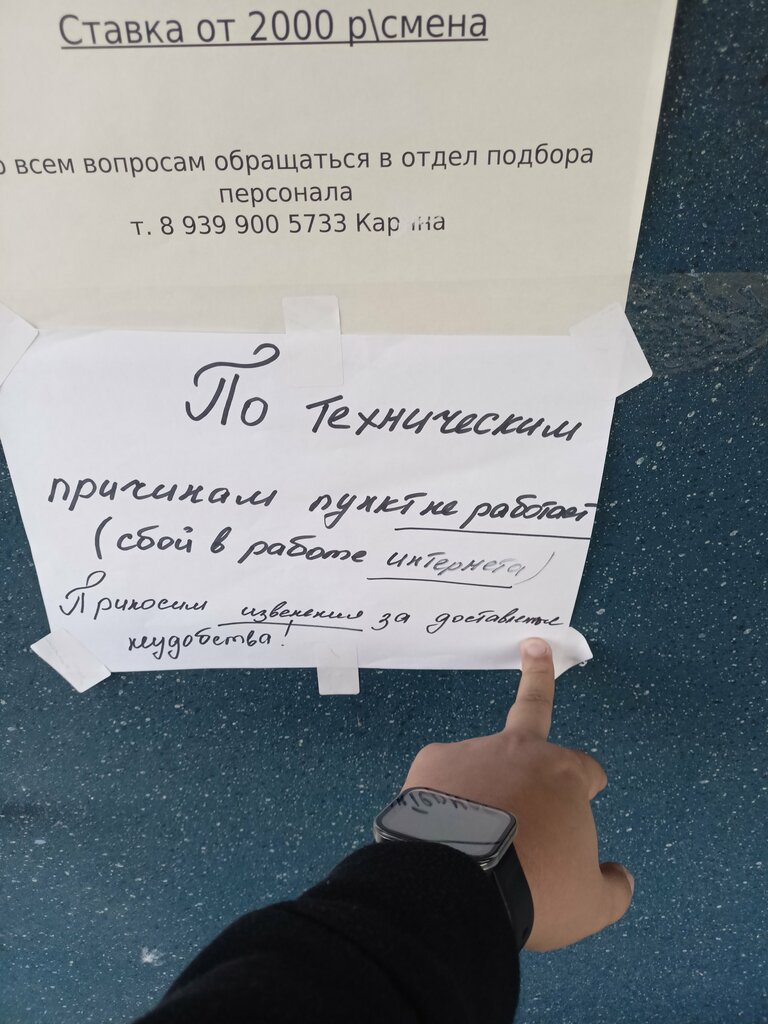 Ставка от 2000 р\смена
о всем вопросам обращаться в отдел подбора
персонала
т. 8 939 900 5733 Карина
По техническим
причинам пункт не работает
(сбой в работе интернета)
Приносим извенения за доставленые
неудобства!